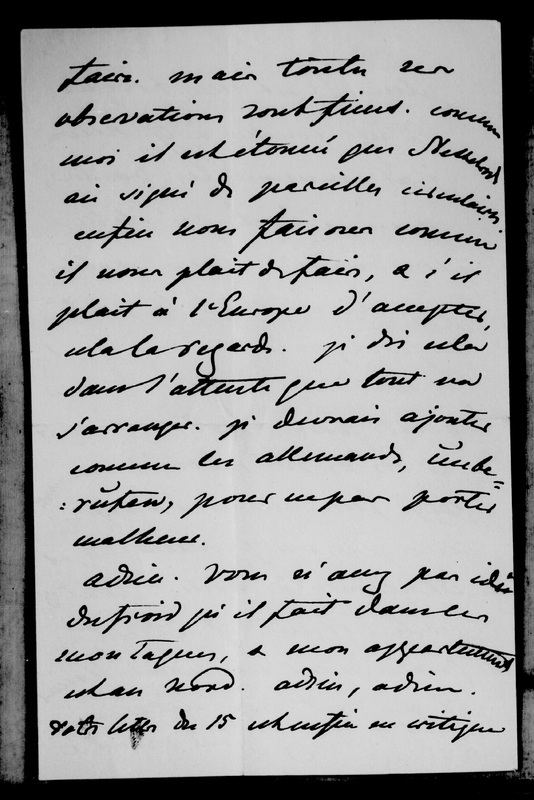 faire. mais toutes ses
observations sont fines. comme
moi il est étonné que Nesselrode
ait signé de pareilles circulaires.
enfin nous faisons comme
il nous plait de faire, & s'il
plait à l'Europe d'accepter,
cela la regarde. je dis cela
dans l'attente que tout va
s'arranger. je devrais ajouter
comme les allemands, unbe=
:rufen, pour ne pas porter
malheur.
adieu. vous n'avez pas idée
du froid qu'il fait dans les
montagnes, & mon appartement
est au nord. adieu, adieu.
votre lettre du 15 est